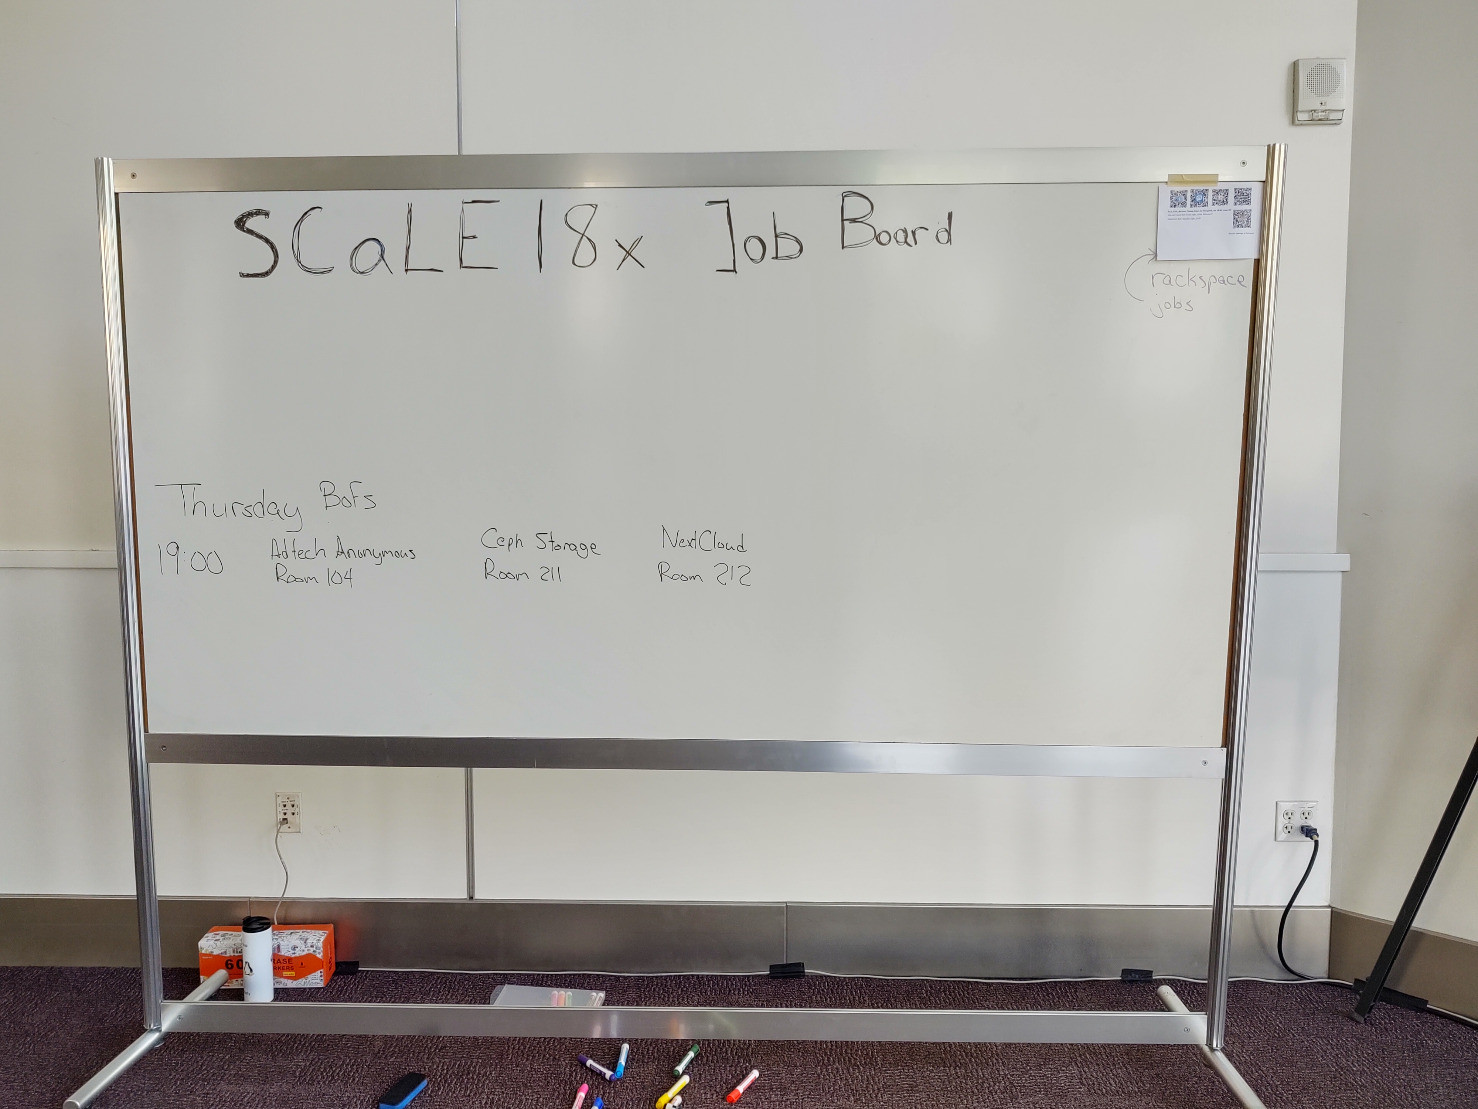 SCaLE 18x Job Board
rackspace
jobs
Thursday BoFs
19:00
Adtech Anonymous
Room 104
Ceph Storage
Room 211
NextCloud
Room 212
60